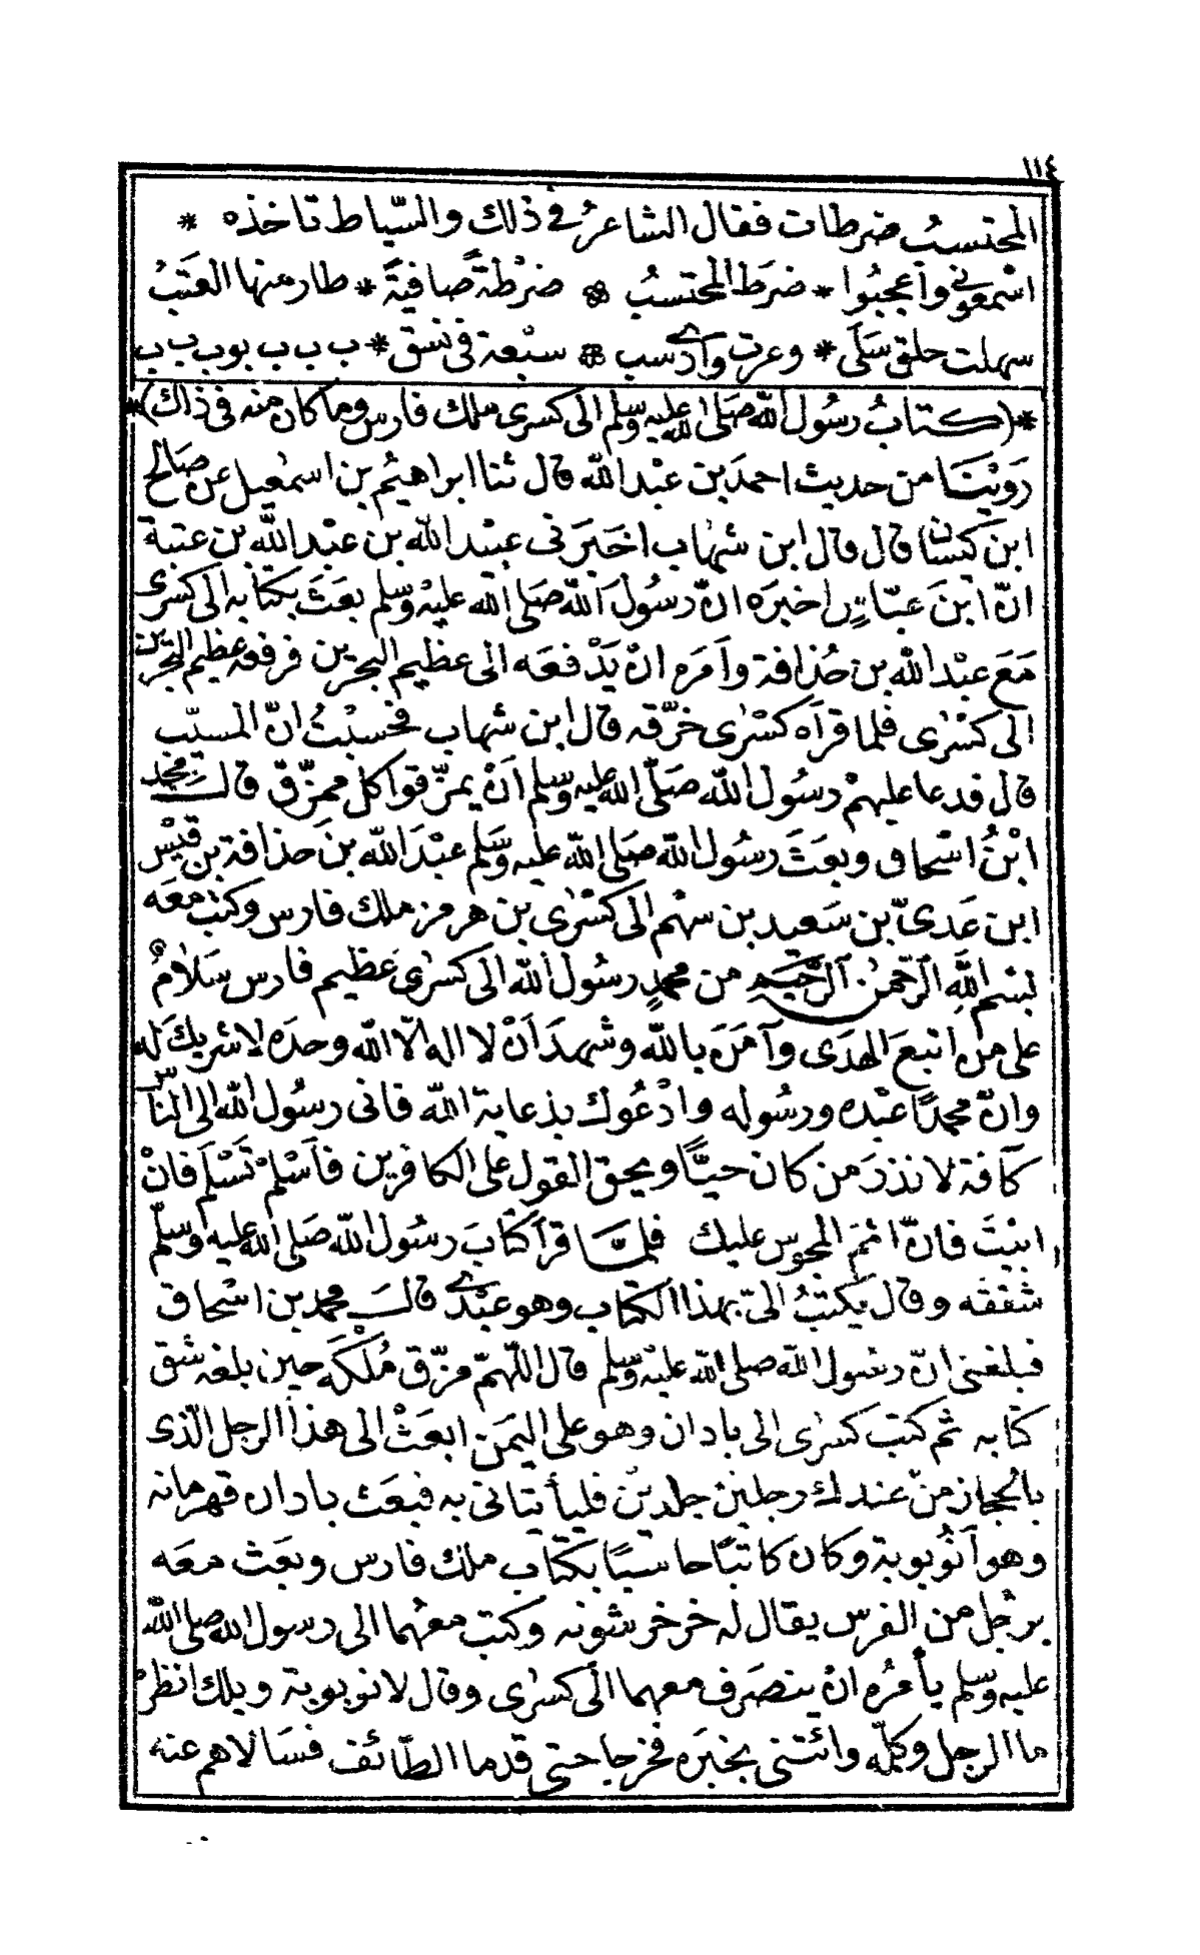 ١١٤
المحتسبُ ضرطات فقال الشاعرُ في ذلك والسّياط تاخذه *
اسْمعوني وأعجبُوا * ضرَط المحتسبُ ضرْطةً صافيةً * طار منها العَتَبُ
سهلت حلقى سَلَى * وعرت وآدى سب سبْعة فى نسَق * ب ب ب بوب ب ب
*(كتابُ رسُول الله صَلى الله عليه وسَلم الى كسرى ملك فارس وما كان منه فى ذاك)*
رَوَيْنَا من حديث احمدَ بن عبْد الله قال ثنا ابراهيمُ بن اسمٰعيل عن صَالح
ابن كيْسان قال قال ابن شهٰاب اخبَرَنى عبيْد الله بن عبْد الله بن عتبة
انّ ابنَ عبّاسٍ اخبرَه انّ رسُولَ الله صَلى الله عليْه وسَلم بعَثَ بكتابه الى كسرى
مَعَ عبْد الله بن حُذافة وأمَرَه انْ يَدْفعَه الى عظيم البحرين فرفعه عظيم البحرين
الى كسْرٰى فلما قرأه كسْرٰى خرّقه قال ابن شهاب فحسبْتُ انّ المسيّب
قال فدعا عليهمْ رسُول الله صَلّى الله عليه وسَلم أنْ يمزّقوا كل ممزّق قال محمد
ابْنُ اسْحاق وبعَثَ رسُول الله صَلى الله عليه وسَلم عبْدَ الله بن حذافة بن قيْس
ابن عَدىّ بن سَعيد بن سهْم الى كسْرٰى بن هرمز ملك فارس وكتب معَه
بسْم اللهِ الرّحمٰن الرّحيم من محمدٍ رسُول الله الى كسرٰى عَظيم فارس سَلامٌ
على من اتبعَ الهدَى وآمَنَ بالله وشهدَ أنْ لا اله الّا الله وحدَه لا شريكَ له
وانّ محمدًا عبْده ورسُوله وادْعُوك بدعاية الله فانى رسُول الله الى النّاس
كآفة لانذرَ من كان حيًّا ويحق القول على الكافرين فأسْلمْ تَسْلَم فانْ
ابيْتَ فانّ اثمَ المجوس عليك فلمّا قرأ كتابَ رسُول الله صَلى الله عليه وسَلم
شققه وقال يكتبُ الىّ بهذا الكتاب وهو عبْدى قال محمد بن اسْحاق
فبلغنى انّ رسُول الله صلى الله عليْه وسَلم قال اللّهمّ مزّق مُلكَه حين بلغه شق
كتابه ثم كتب كسرٰى الى باذان وهو على اليمَن ابعَثْ الى هذا الرجل الّذى
بالحجاز منْ عندك رجليْن جلدَيْن فليأتيانى به فبعَث باذان قهرمانه
وهو أنُوبوية وكان كاتبًا حاسبًا بكتاب ملك فارس وبعَث معَه
برجُل من الفرس يقال له خرخرشونه وكتب معهُما الى رسول الله صلى الله
عليه وسَلم يأمُره انْ ينصَرف معهما الى كسرٰى وقال لانوبوية ويلك انظرْ
ما الرجل وكلّمه وائتنى بخبَره فخرجا حتى قدما الطّائف فسَألاهم عنه